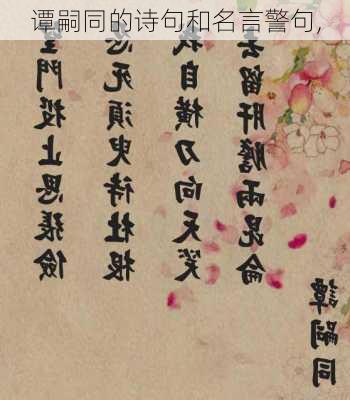 谭嗣同的诗句和名言警句,
望門投止思張儉
忍死須臾待杜根
我自橫刀向天笑
去留肝膽兩昆侖
譚嗣同